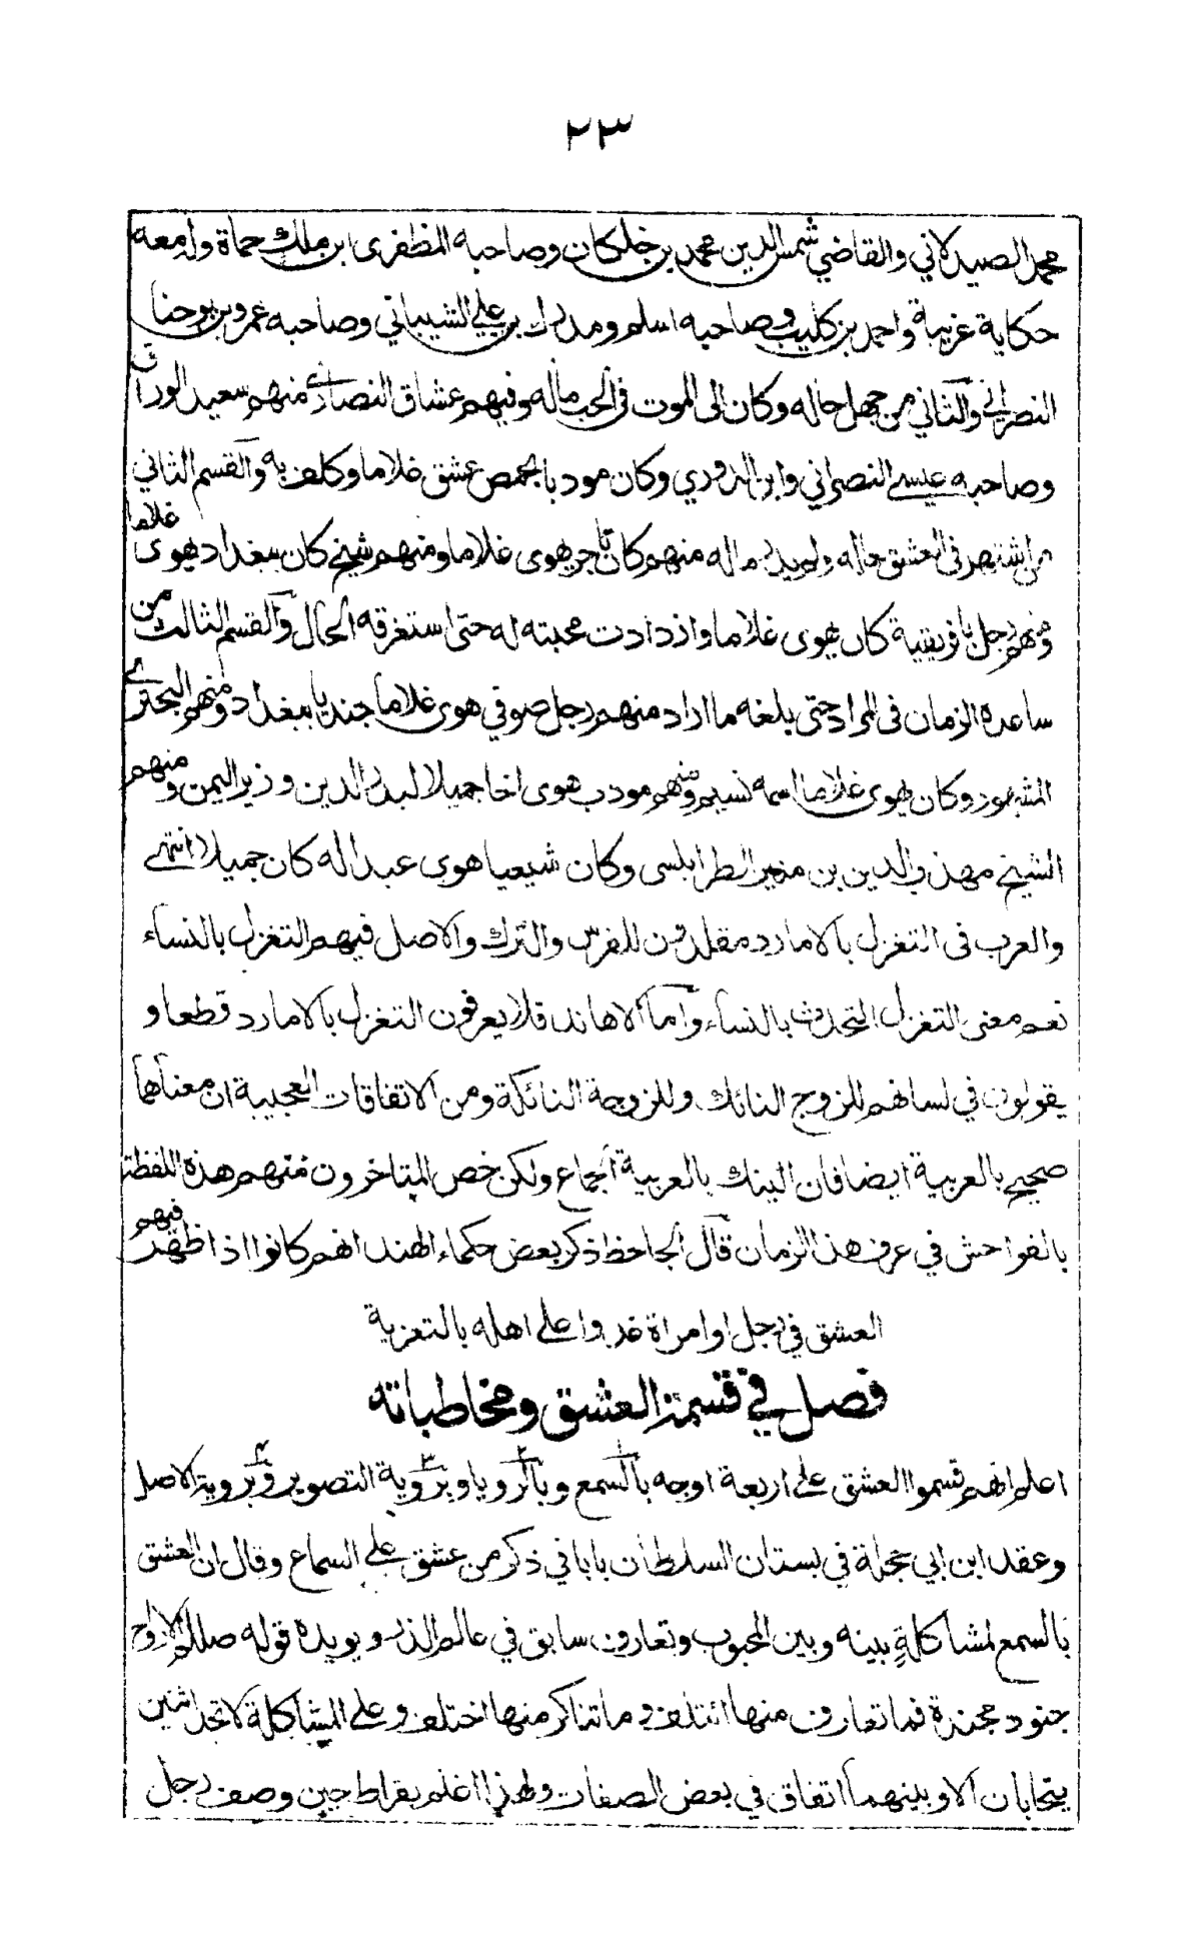 ٢٣
محمد الصيدلاني والقاضي شمس الدين محمد بن خلكان وصاحبه المظفرى ابن ملك حماة وله معه
حكاية غريبة واحمد بن كليب وصاحبه اسلم ومدرك بن علي الشيباني وصاحبه عمرو بن يوحنا
النصراني والثاني من جهل حاله وكان الى الموت في الحب مأله وفيهم عشاق النصارى منهم سعيد الوراق
وصاحبه عيسى النصراني وابن الدوري وكان مودبا بحمص عشق غلاما وكلف به والقسم الثاني
من اشتهر في العشق حاله ولم يدر مأله منهم كان تاجر يهوى غلاما ومنهم شيخ كان ببغداد يهوى غلاما
ومنهم رجل بافريقية كان يهوى غلاما وازدادت محبته له حتى استغرقه الحال والقسم الثالث من
ساعده الزمان في المراد حتى بلغه ما اراد منهم رجل صوفي هوى غلاما جنديا ببغداد ومنهم البحتري
المشهور وكان يهوى غلاما اسمه نسيم ومنهم مودب هوى اخا جميلا لبدر الدين وزير اليمن ومنهم
الشيخ مهذب الدين بن منير الطرابلسى وكان شيعيا هوى عبدا له كان جميلا انتهى
والعرب في التغزل بالامارد مقلدون للفرس والترك والاصل فيهم التغزل بالنساء
نعم معنى التغزل التحدث بالنساء واما الاهاند فلا يعرفون التغزل بالامارد قطعا و
يقولون في لسانهم للزوج النائك وللزوجة النائكة ومن الاتفاقات العجيبة ان معناهما
صحيح بالعربية ايضا فان النيك بالعربية الجماع ولكن خص المتاخرون منهم هذه اللفظة
بالفواحش في عرف هذا الزمان قال الجاحظ ذكر بعض حكماء الهند انهم كانوا اذا ظهر فيهم
العشق في رجل او امراة غدوا على اهله بالتعزية
فصل في قسمة العشق ومخاطباته
اعلم انهم قسموا العشق على اربعة اوجه بالسمع وبالرويا وبروية التصوير وبروية الاصل
وعقد ابن ابي حجلة في بستان السلطان بابا في ذكر من عشق على السماع وقال ان العشق
بالسمع لمشاكلة بينه وبين المحبوب وتعارف سابق في عالم الذر ويويده قوله صللم الارواح
جنود مجندة فما تعارف منها ائتلف وما تناكر منها اختلف وعلى المشاكلة لا تجد اثنين
يتحابان الا وبينهما اتفاق في بعض الصفات ولهذا اغتم بقراط حين وصف رجل